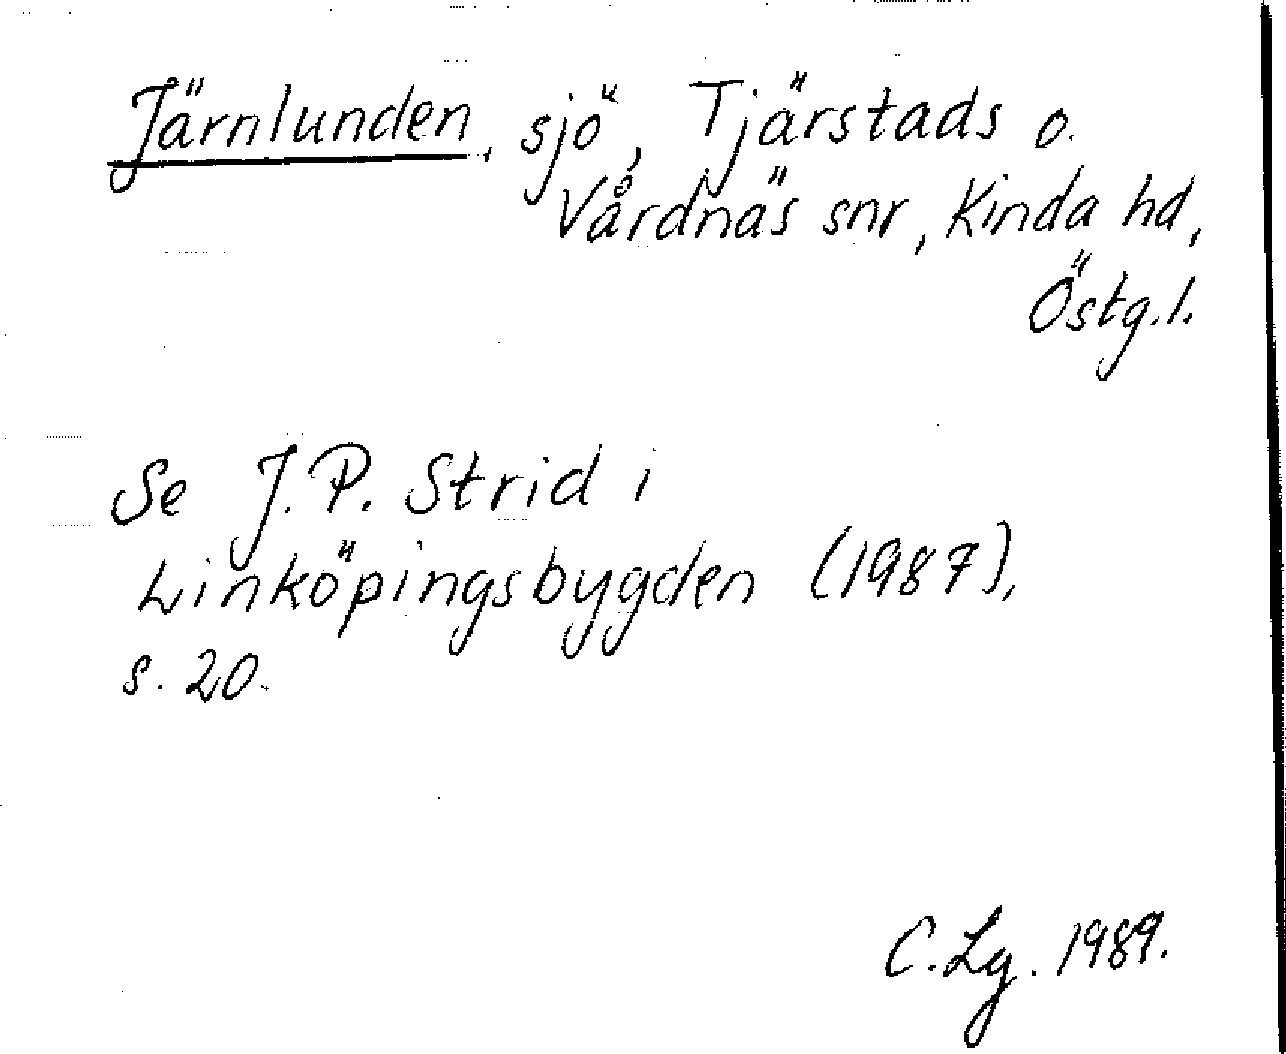 Järnlunden, sjö, Tjärstads o.
Vårdnäs snr, Kinda hd,
Östg.l.
Se J.P. Strid i
Linköpingsbygden (1987),
s. 20.
C. Lg. 1989.